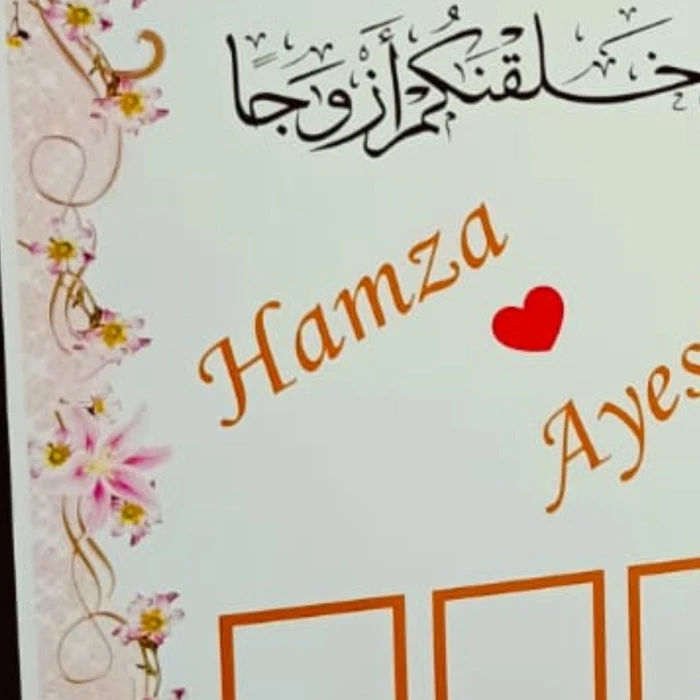 خلقنكم أزوجا
Hamza
Ayes